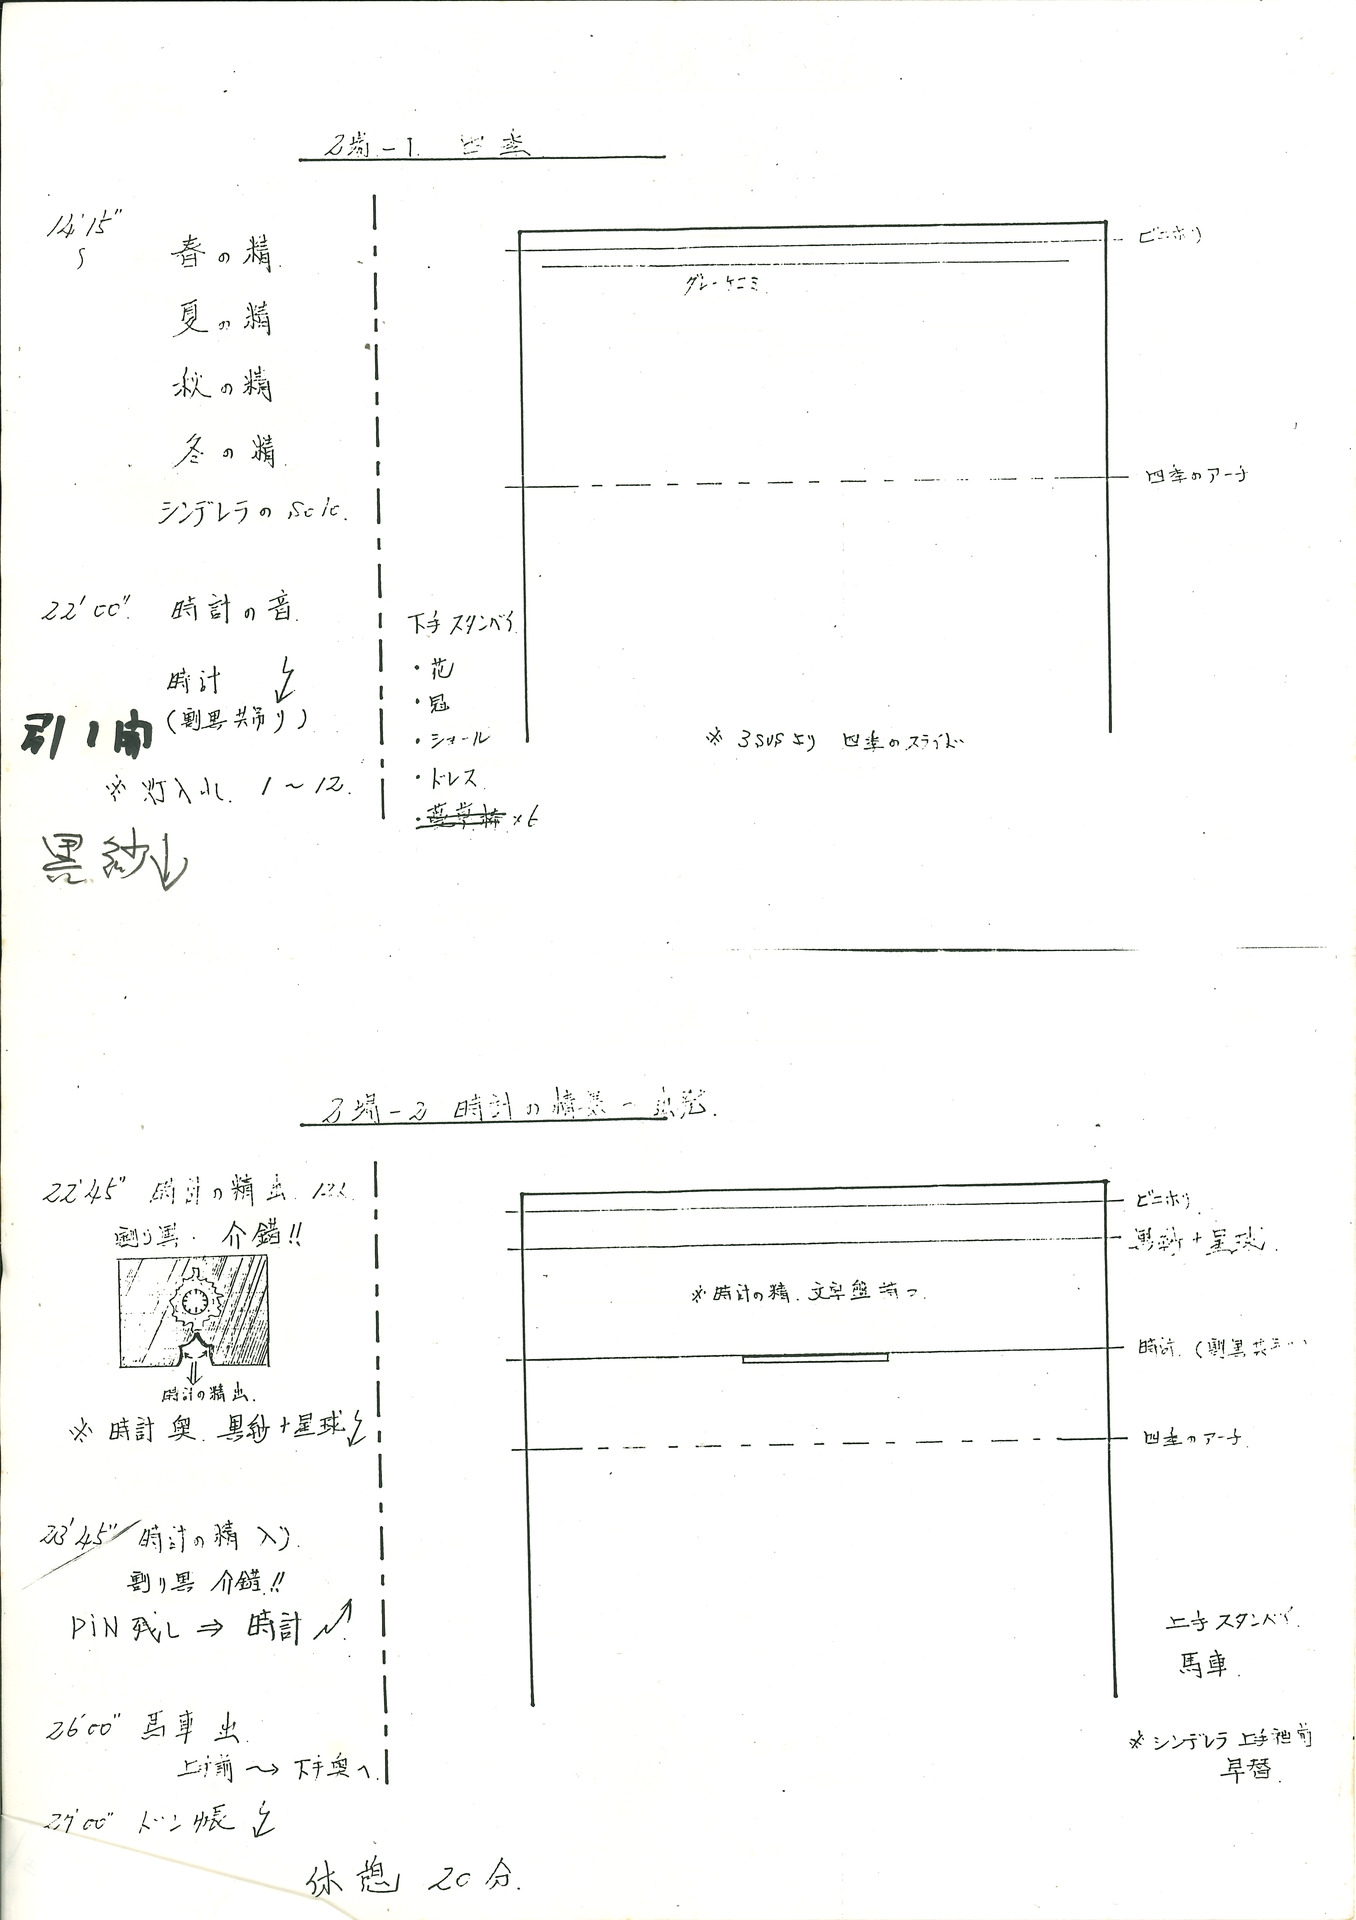 2場-1 四季
14'15"
〜
春の精
夏の精
秋の精
冬の精
シンデレラの Solo.
22'00" 時計の音
時計
(割黒共吊り)
引1開
※ 灯入れ 1〜12
黒紗↓
下手スタンバイ
・花
・冠
・ショール
・ドレス
×6
ビニホリ
グレーケコミ
四季のアーチ
※ 3SUSより 四季のスライド
2場-2 時計の精
22'45" 時計の精 出
割り黒 介錯!!
時計の精 出
※ 時計奥 黒紗+星球
23'45" 時計の精 入り
割り黒 介錯!!
PiN 残し ⇒ 時計
26'00" 馬車 出
上手前 → 下手奥へ
27'00" ドン帳
休憩 20分.
ビニホリ
黒紗+星球
※ 時計の精 文字盤 持つ
時計 (割黒共
四季のアーチ
上手スタンバイ
馬車
※ シンデレラ 上手袖前
早替